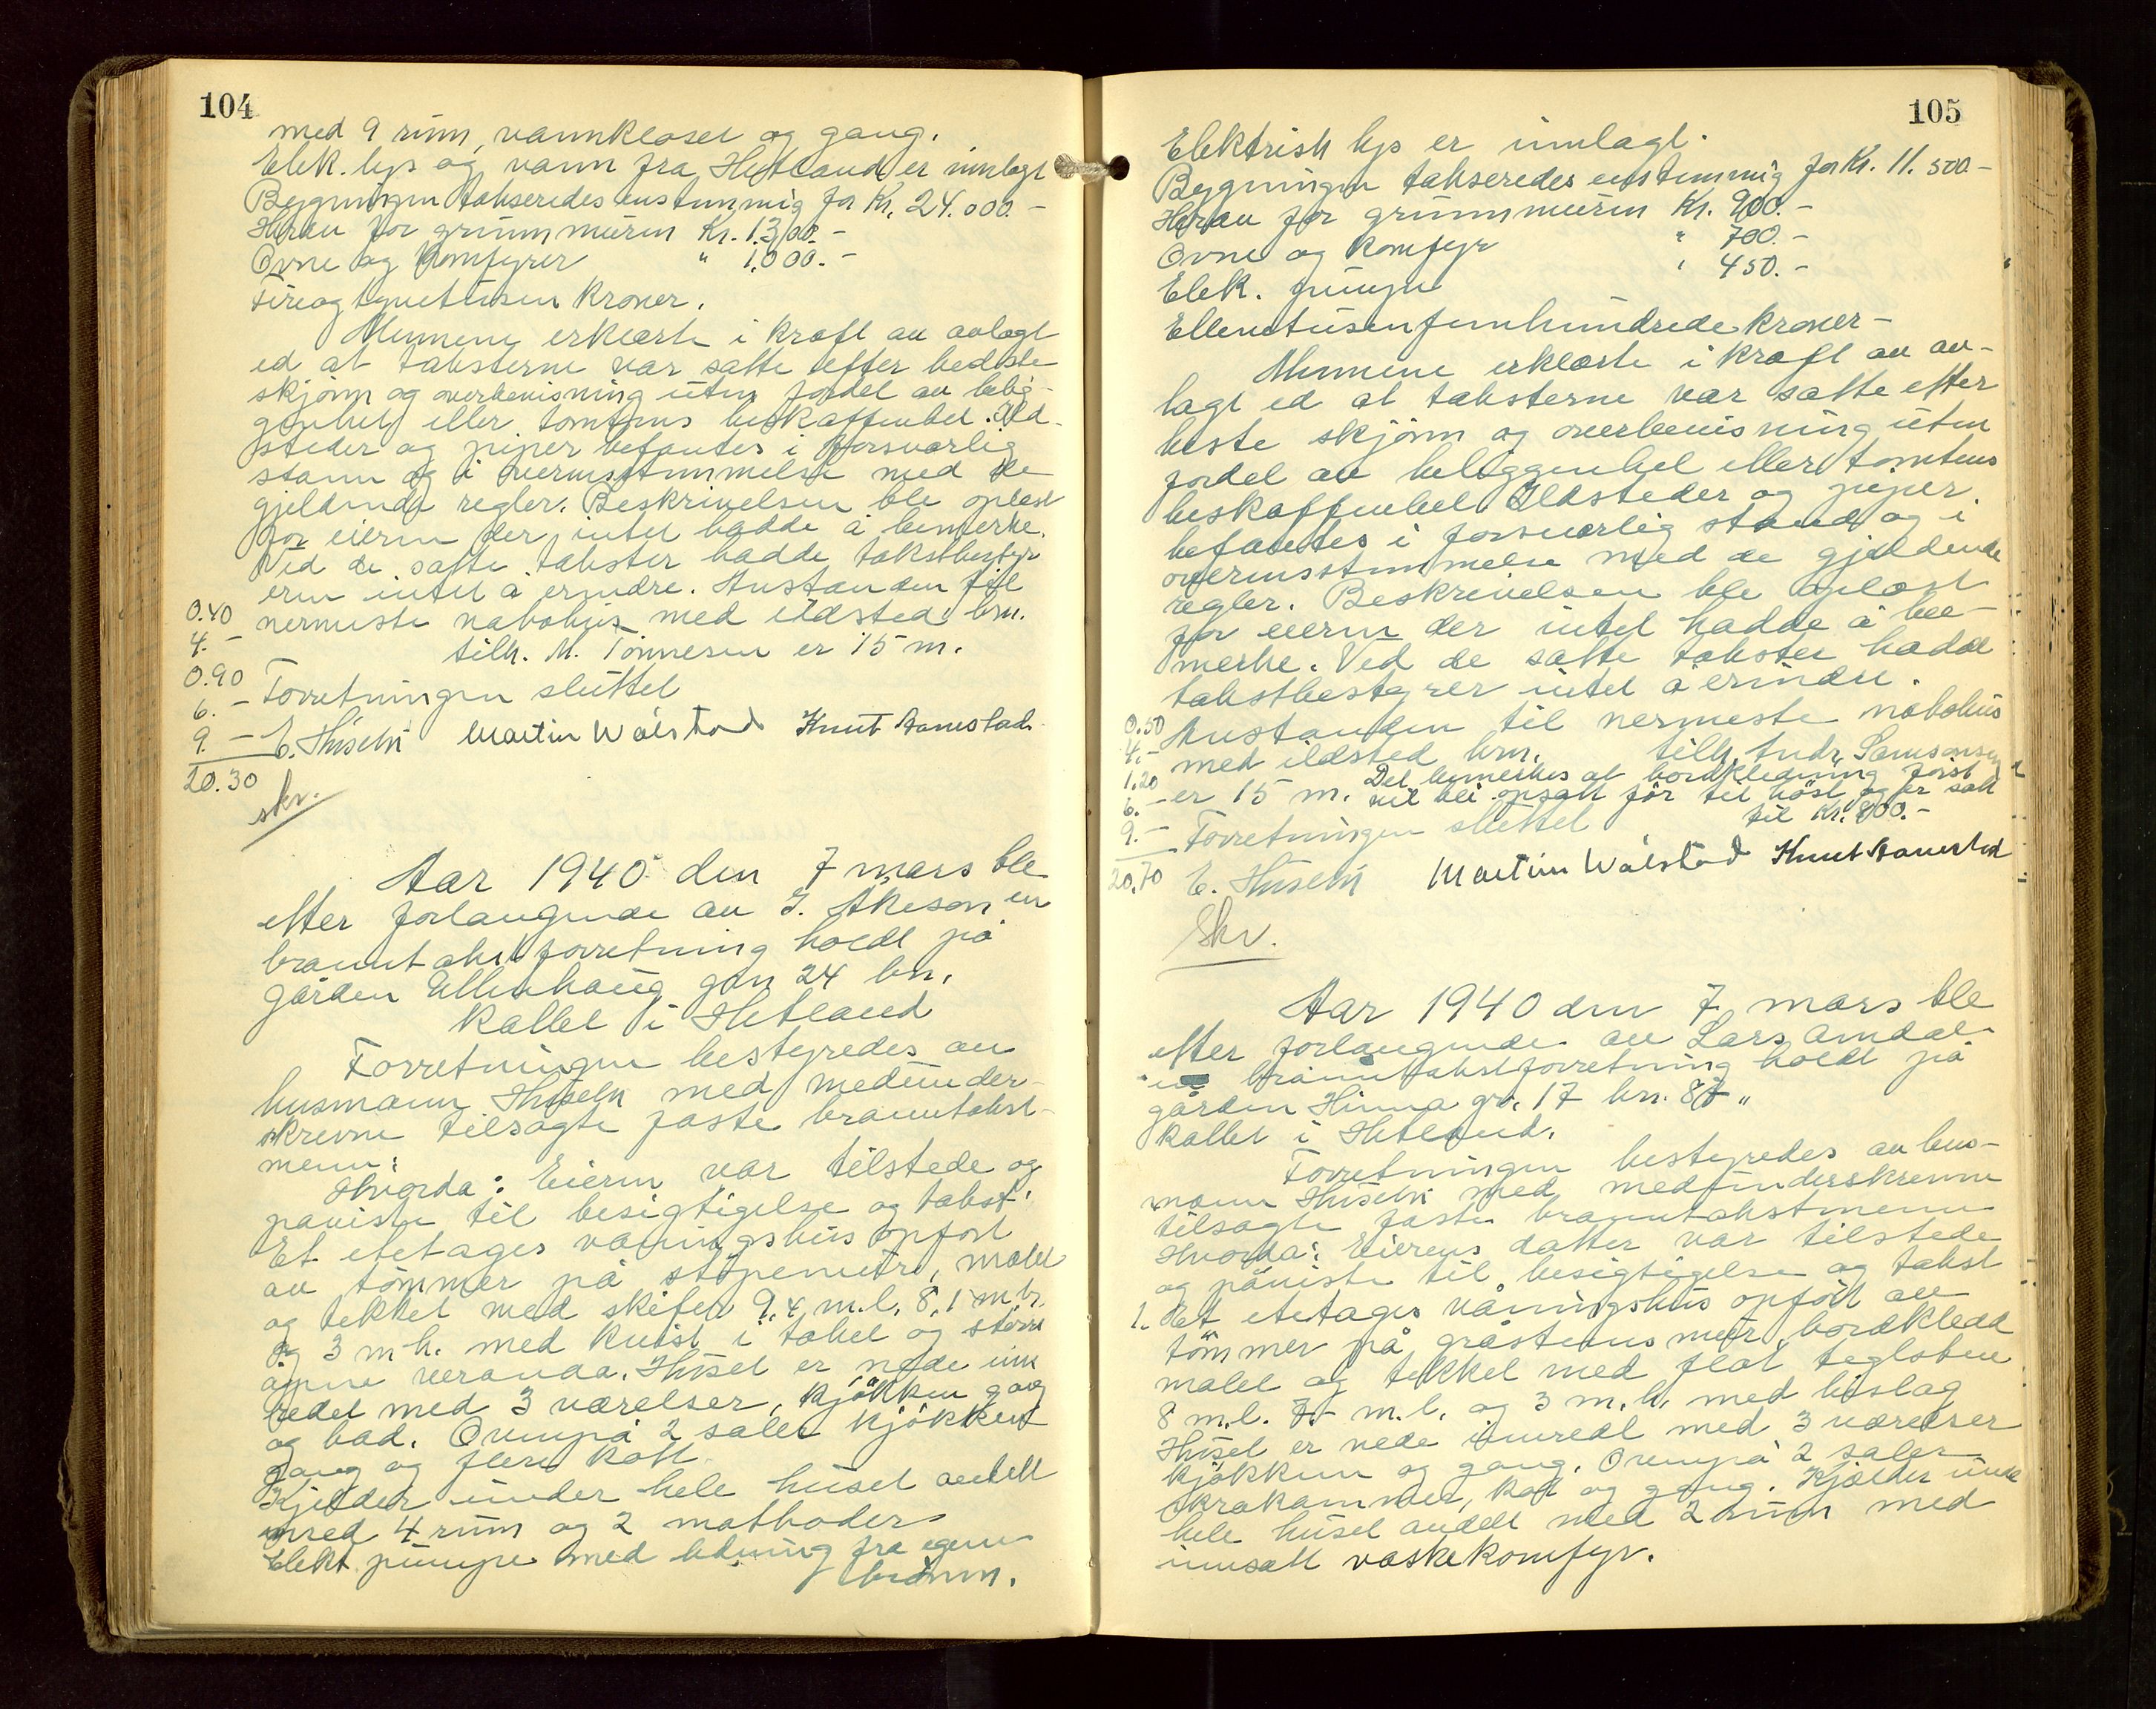 104
med 9 rum, vannkloset og gang.
Elek. lys og vann fra Hetland er innlagt
Bygningen takseredes enstemmig for Kr. 24.000.-
Herav for grunnmuren Kr. 1300.-
Ovne og komfyrer " 1,000.-
Fireogtyvetusen kroner.
Mennene erklærte i kraft av avlagt
ed at taksterne var satte efter bedste
skjønn og overbevisning uten fordel av belig-
genhet eller tomtens beskaffenhet. Ild-
steder og piper befantes i forsvarlig
stann og i overensstemmelse med de
gjeldende regler. Beskrivelsen ble oplest
for eieren der intet hadde å bemerke.
Ved de satte takster hadde takstbestyr
eren intet å erindre. Avstanden til
nermeste nabohus med ildsted brn.
tilh. M. Tønnesen er 15 m.
Forretningen sluttet
E. Huseby Martin Wålstad Knut Hanestad
0.40
4.-
0.90
6.-
9.-
20.30
skr.
Aar 1940 den 7 mars ble
efter forlangende av J. Åkeson en
branntakstforretning holdt på
gården Ullenhaug gn 24 bn.
kallet i Hetland
Forretningen bestyredes av
husmann Huseby med medunder-
skrevne tilsagte faste branntakst-
menn:
Hvorda: Eieren var tilstede og
paaviste til besigtigelse og takst:
Et etetages våningshus opført
av tømmer på støpemur, malet
og tekket med skifer 9,4 m.l. 8,1 m br.
og 3 m h. med kvist i taket og større
åpne veranda. Huset er nede inn
redet med 3 værelser, kjøkken gang
og bad. Ovenpå 2 saler kjøkken
gang og flere kott
Kjelder under hele huset avdelt
med 4 rum og 2 matboder
Elekt pumpe med ledning fra egen
brønn.
105
Elektrisk lys er innlagt.
Bygningen takseredes enstemmig for Kr. 11.500-
Herav for grunnmuren Kr. 900.-
Ovne og komfyr " 700.-
Elek. pumpe " 450.-
Ellevetusenfemhundrede kroner-
Mennene erklærte i kraft av av-
lagt ed at taksterne var satte efter
beste skjønn og overbevisning uten
fordel av beliggenhet eller tomtens
beskaffenhet Ildsteder og piper
befantes i forsvarlig stand og i
overensstemmelse med de gjeldende
regler. Beskrivelsen ble oplest
for eieren der intet hadde å be-
merke. Ved de satte takster hadde
takstbestyrer intet å erindre.
Avstanden til nermeste nabohus
med ildsted brn. tilh. Andr. Samsonsen
er 15 m. Det bemerkes at bordkledning først
vil bli opsatt før til høst og er satt
til Kr. 800.-
Forretningen sluttet
E. Huseby Martin Wålstad Knut Hanestad
0.50
4.-
1.20
6.-
9.-
20,70
Skr.
Aar 1940 den 7 mars ble
efter forlangende av Lars Omdal
en branntakstforretning holdt på
gården Hinna gn. 17 bn. 87 "
kallet i Hetland.
Forretningen bestyredes av hus-
mann Huseby med medunderskrevne
tilsagte faste branntakstmenn
Hvorda: Eierens datter var tilstede
og påviste til besigtigelse og takst
1. Et etetages våningshus opført av
tømmer på gråsteins mur, bordkledd
malet og tekket med flat teglsten
8 m.l. 7- m.b. og 3 m.h. med bislag
Huset er nede innredt med 3 værelser
kjøkken og gang. Ovenpå 2 saler
skråkammer, kot og gang. Kjælder unde
hele huset avdelt med 2 rum med
innsatt vaskekomfyr.